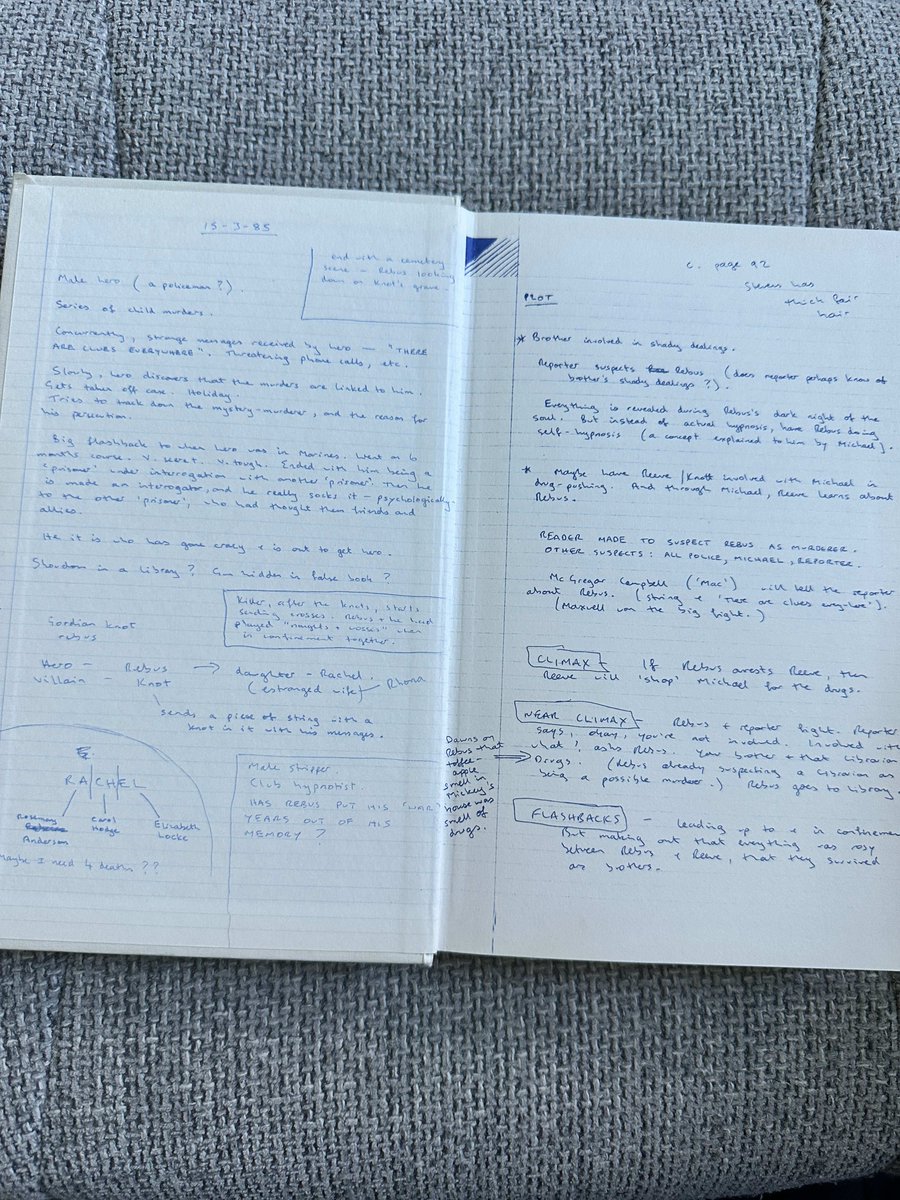 15-3-85
end with a cemetery
scene - Rebus looking
down on Knot's grave -
Male hero (a policeman?).
Series of child murders.
Concurrently, strange messages received by hero - "THERE
ARE CLUES EVERYWHERE". Threatening phone calls, etc.
Slowly, hero discovers that the murders are linked to him.
Gets taken off case. Holiday.
Tries to track down the mystery-murderer, and the reason for
his persecution.
Big flashback to when hero was in Marines. Went on 6
months course. V. secret. V. tough. Ended with him being a
'prisoner' under interrogation with another 'prisoner'. Then he
is made an interrogator, and he really socks it - psychologically-
to the other 'prisoner', who had thought them friends and
allies.
He it is who has gone crazy & is out to get hero.
Showdown in a library? Gun hidden in false book?
Killer, after the knots, starts
sending crosses. Rebus & he had
played "noughts & crosses" when
in confinement together.
Gordian knot
rebus
Hero - Rebus → daughter - Rachel.
(estranged wife) - Rhona
Villain - Knot
sends a piece of string with a
knot in it with his messages.
RA/CH/EL
Rosemary
Anderson
Carol
Hodge
Elizabeth
Locke
Maybe I need 4 deaths??
Male stripper.
Club hypnotist.
HAS REBUS PUT HIS 'WAR'
YEARS OUT OF HIS
MEMORY?
c. page 92
Stevens has
thick fair
hair
PLOT
* Brother involved in shady dealings.
Reporter suspects Rebus (does reporter perhaps know of
brother's shady dealings?).
Everything is revealed during Rebus's dark night of the
soul. But instead of actual hypnosis, have Rebus doing
self-hypnosis (a concept explained to him by Michael).
* Maybe have Reeve/Knott involved with Michael in
drug-pushing. And through Michael, Reeve learns about
Rebus.
READER MADE TO SUSPECT REBUS AS MURDERER.
OTHER SUSPECTS: ALL POLICE, MICHAEL, REPORTER.
McGregor Campbell ('Mac') will tell the reporter
about Rebus. (string & 'There are clues everywhere').
(Maxwell won the big fight.)
CLIMAX - If Rebus arrests Reeve, then
Reeve will 'shop' Michael for the drugs.
NEAR CLIMAX - Rebus & reporter fight. Reporter
says, okay, you're not involved. Involved with
what?, asks Rebus. Your brother & that librarian
Drugs. (Rebus already suspecting a librarian as
being a possible murderer.) Rebus goes to library.
Dawns on
Rebus that
toffee-
apple
smell in
Mickey's
house was
smell of
drugs.
FLASHBACKS - leading up to & in confinement
But making out that everything was rosy
between Rebus & Reeve, that they survived
as brothers.